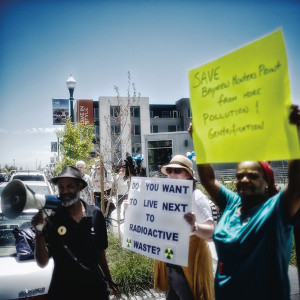 SAVE
BAYVIEW HUNTERS POINT
FROM MORE
POLLUTION &
GENTRIFICATION
DO YOU WANT
TO LIVE NEXT
TO
RADIOACTIVE
WASTE?